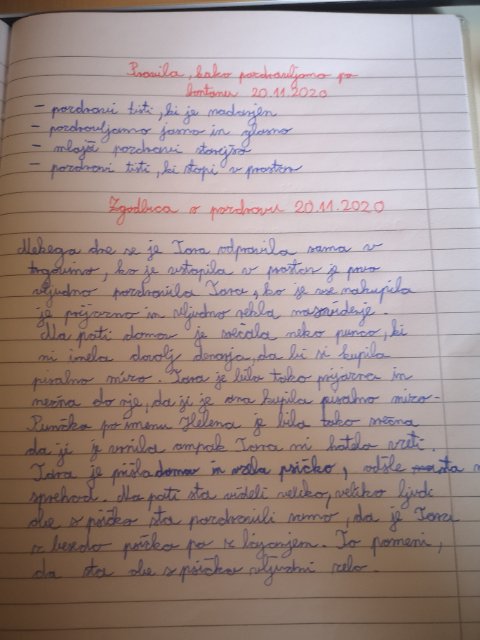 Pravila, kako pozdravljamo po
bontonu 20.11.2020
- pozdravi tisti, ki je nadarjen
- pozdravljamo jasno in glasno
- mlajši pozdravi starejšo
- pozdravi tisti, ki stopi v prostor
Zgodbica o pozdravu 20.11.2020
Nekega dne se je Tara odpravila sama v
trgovino, ko je vstopila v prostor je prvo
vljudno pozdravila Tara, ko je vse nakupila
je prijazno in vljudno rekla nasvidenje.
Na poti domov je srečala neko punco, ki
ni imela dovolj denarja, da bi si kupila
pisalno mizo. Tara je bila tako prijazna in
nežna do nje, da ji je ona kupila pisalno mizo.
Punčka po imenu Helena je bila tako srečna
da ji je vrnila ampak Tara ni hotela vzeti.
Tara je prišla domov in vzela psičko, odšle sta
sprehod. Na poti sta videli veliko, veliko ljudi
obe s psičko sta pozdravili samo, da je Tara
z besedo psička pa z lajanjem. To pomeni,
da sta obe s psičko vljudni zelo.